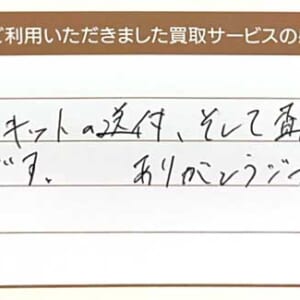 ご利用いただきました買取サービスの
キットの送付、そして査
です。 ありがとうござ